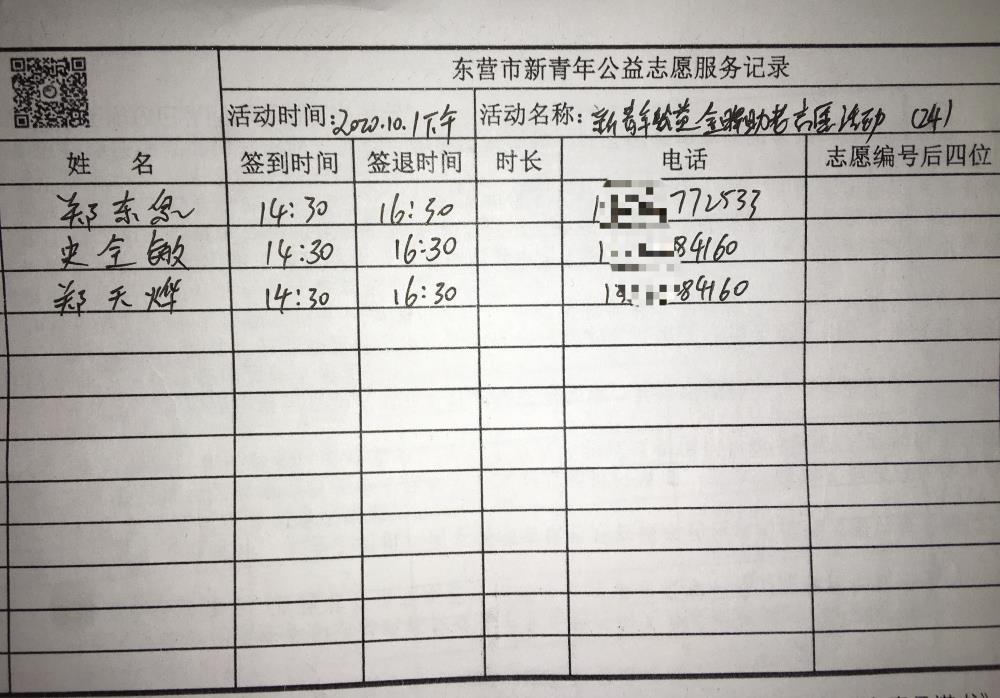 东营市新青年公益志愿服务记录
活动时间:2020.10.1下午 活动名称:新青年公益金晖助老志愿活动 (24)
姓 名 签到时间 签退时间 时长 电话 志愿编号后四位
郑东 14:30 16:30 1 772533
史全敏 14:30 16:30 1 84160
郑天烨 14:30 16:30 84160